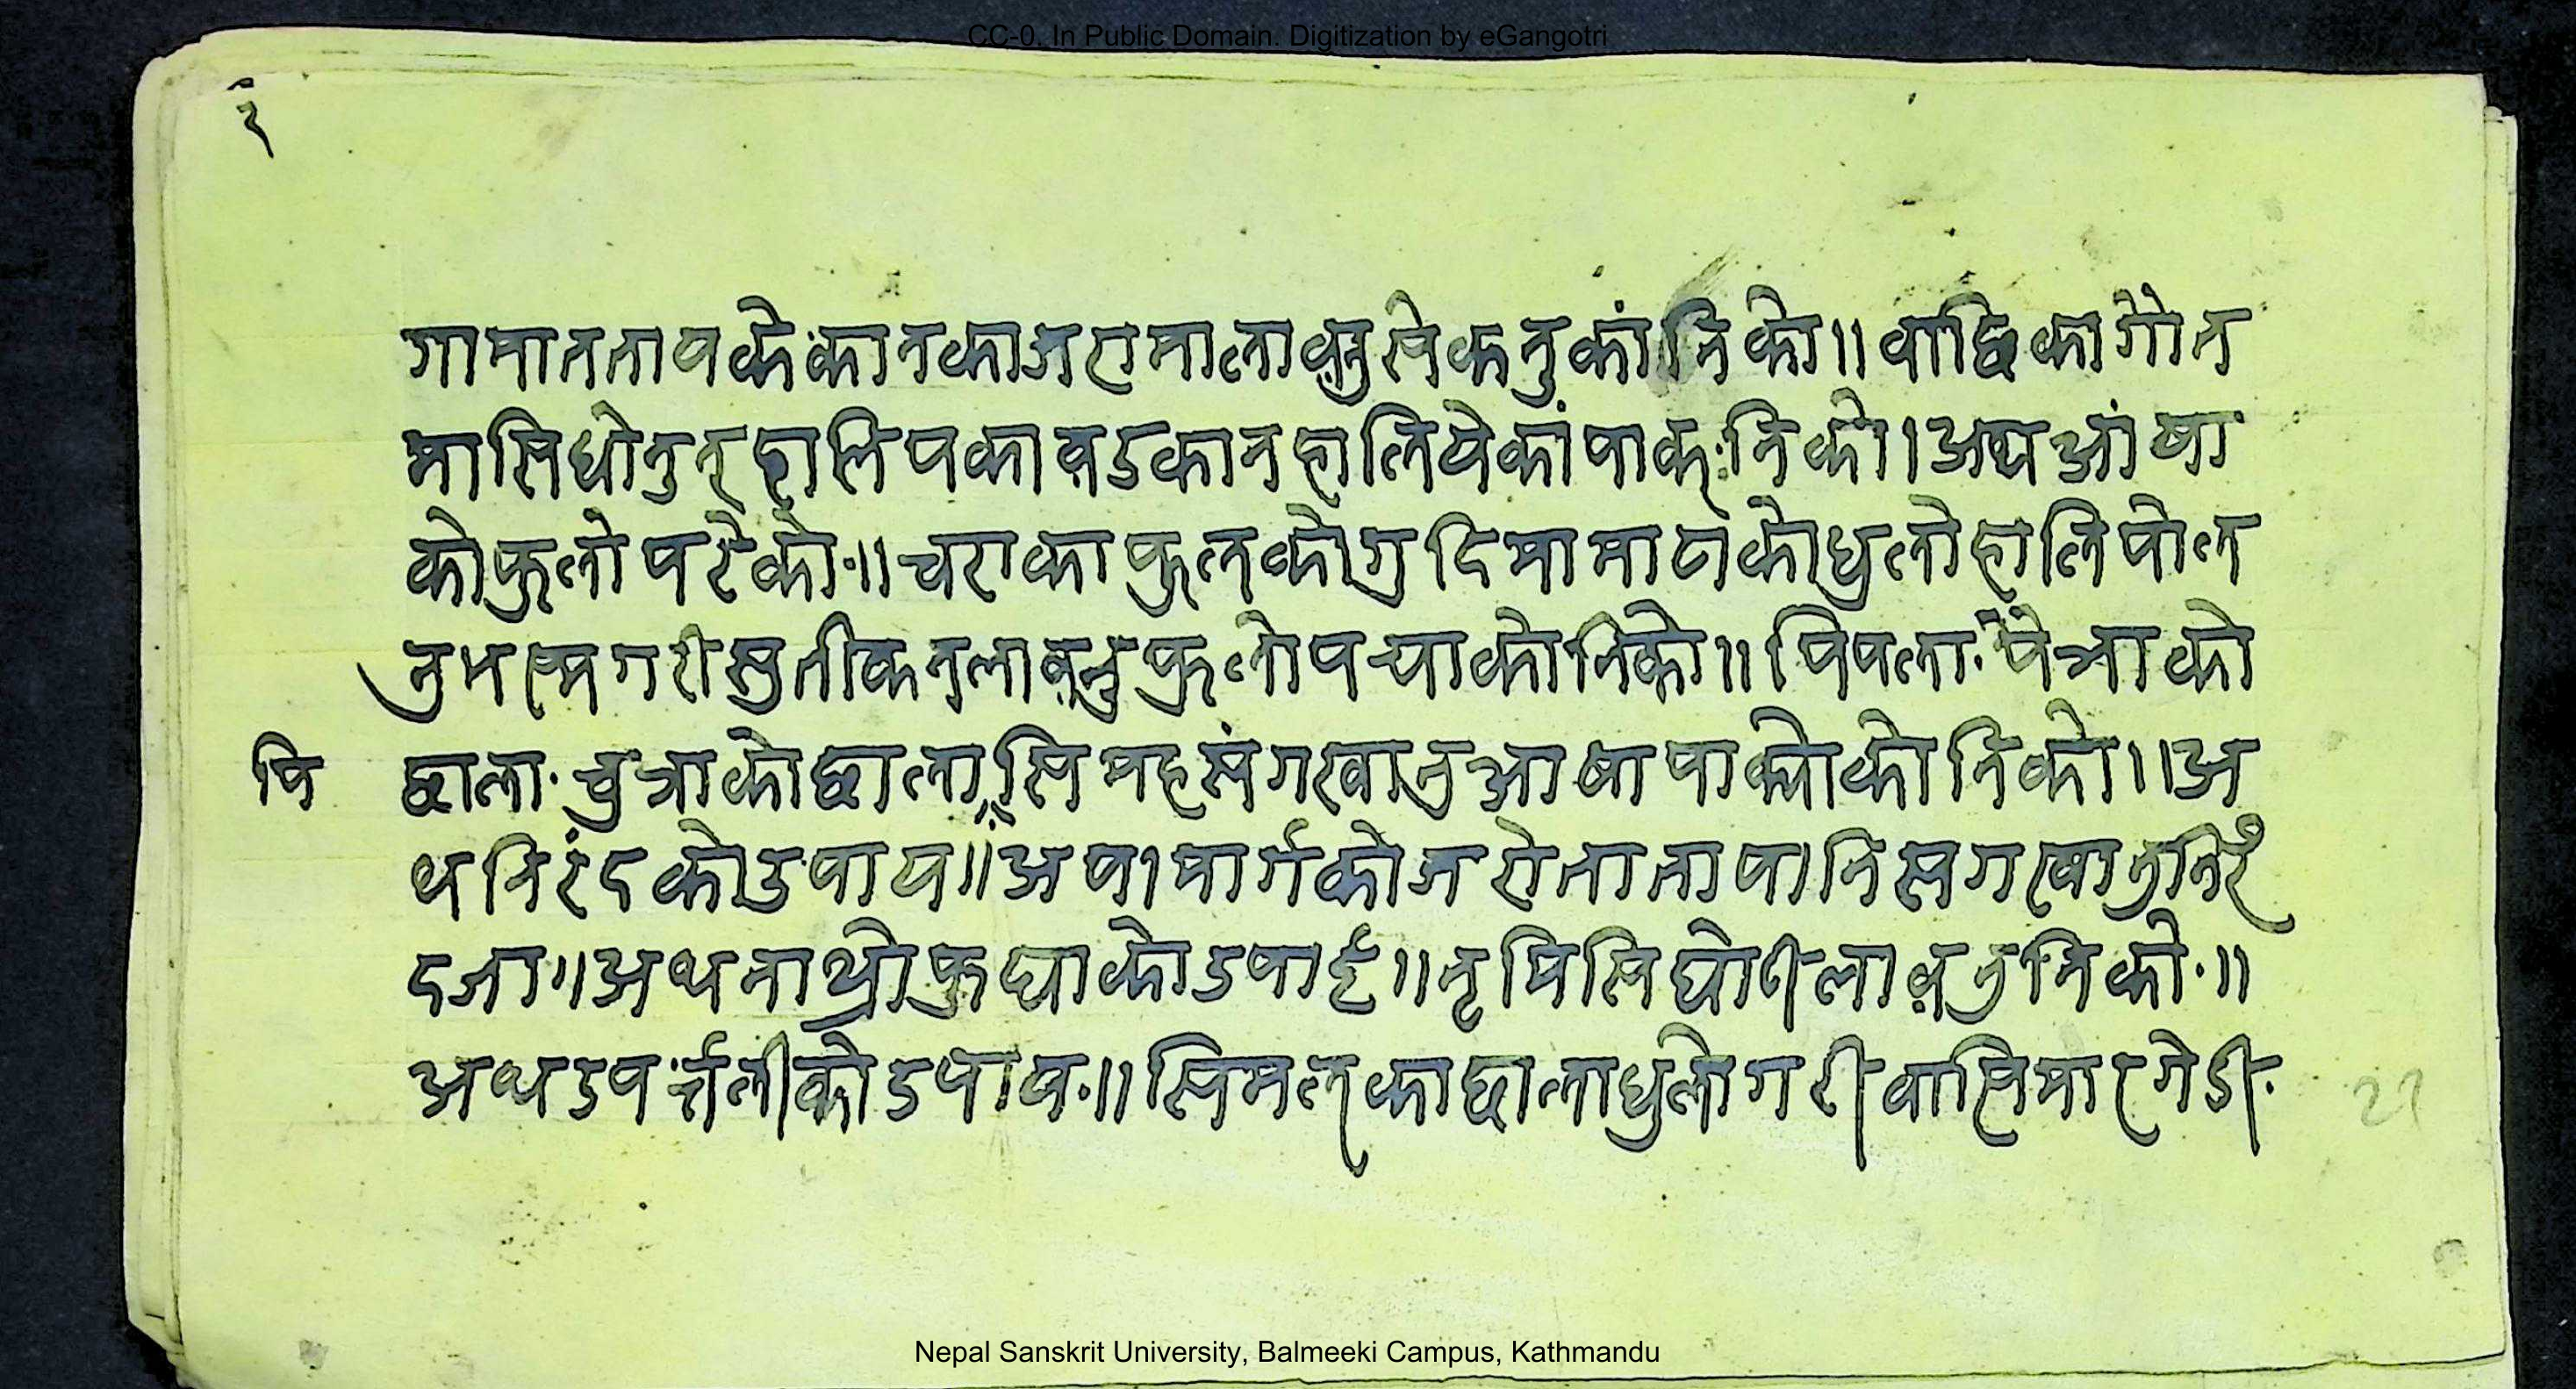 CC-0. In Public Domain. Digitization by eGangotri
३
गामाततापकेकानकाजरामालाव़नुसेकनुकांनिको॥वाछिकागोंत
मासिघोनुन्हालिपकाव़डकानहालियेकांपाक्ःनिको।अथआंषा
कोफुलोपरेको॰॥चराकाफुलकोगुदिमामाटाकोधुलोहालिपोल
नुभस्मगरीस्तुतीकनलाव़नुफुलोपर्‍याकोनिको॥पिपला॰पेत्राको
पि छाला॰चुत्राकोछालासिमहसंगखानुआषापाक्योकोनिको॥अ
थनिरंदकोउपाय॥अपामार्गकोजरोतातापानिसगखानुनिरँ
दजा॥अथनाथ्रोफुघाकोउपाई॥नृमिसिघोटीलाव़नुनिको॰॥
अथउपर्त्तलीकोउपाय॰॥सिमलकाछालाधुलोगरीवासिमारगेडी॰
21
Nepal Sanskrit University, Balmeeki Campus, Kathmandu